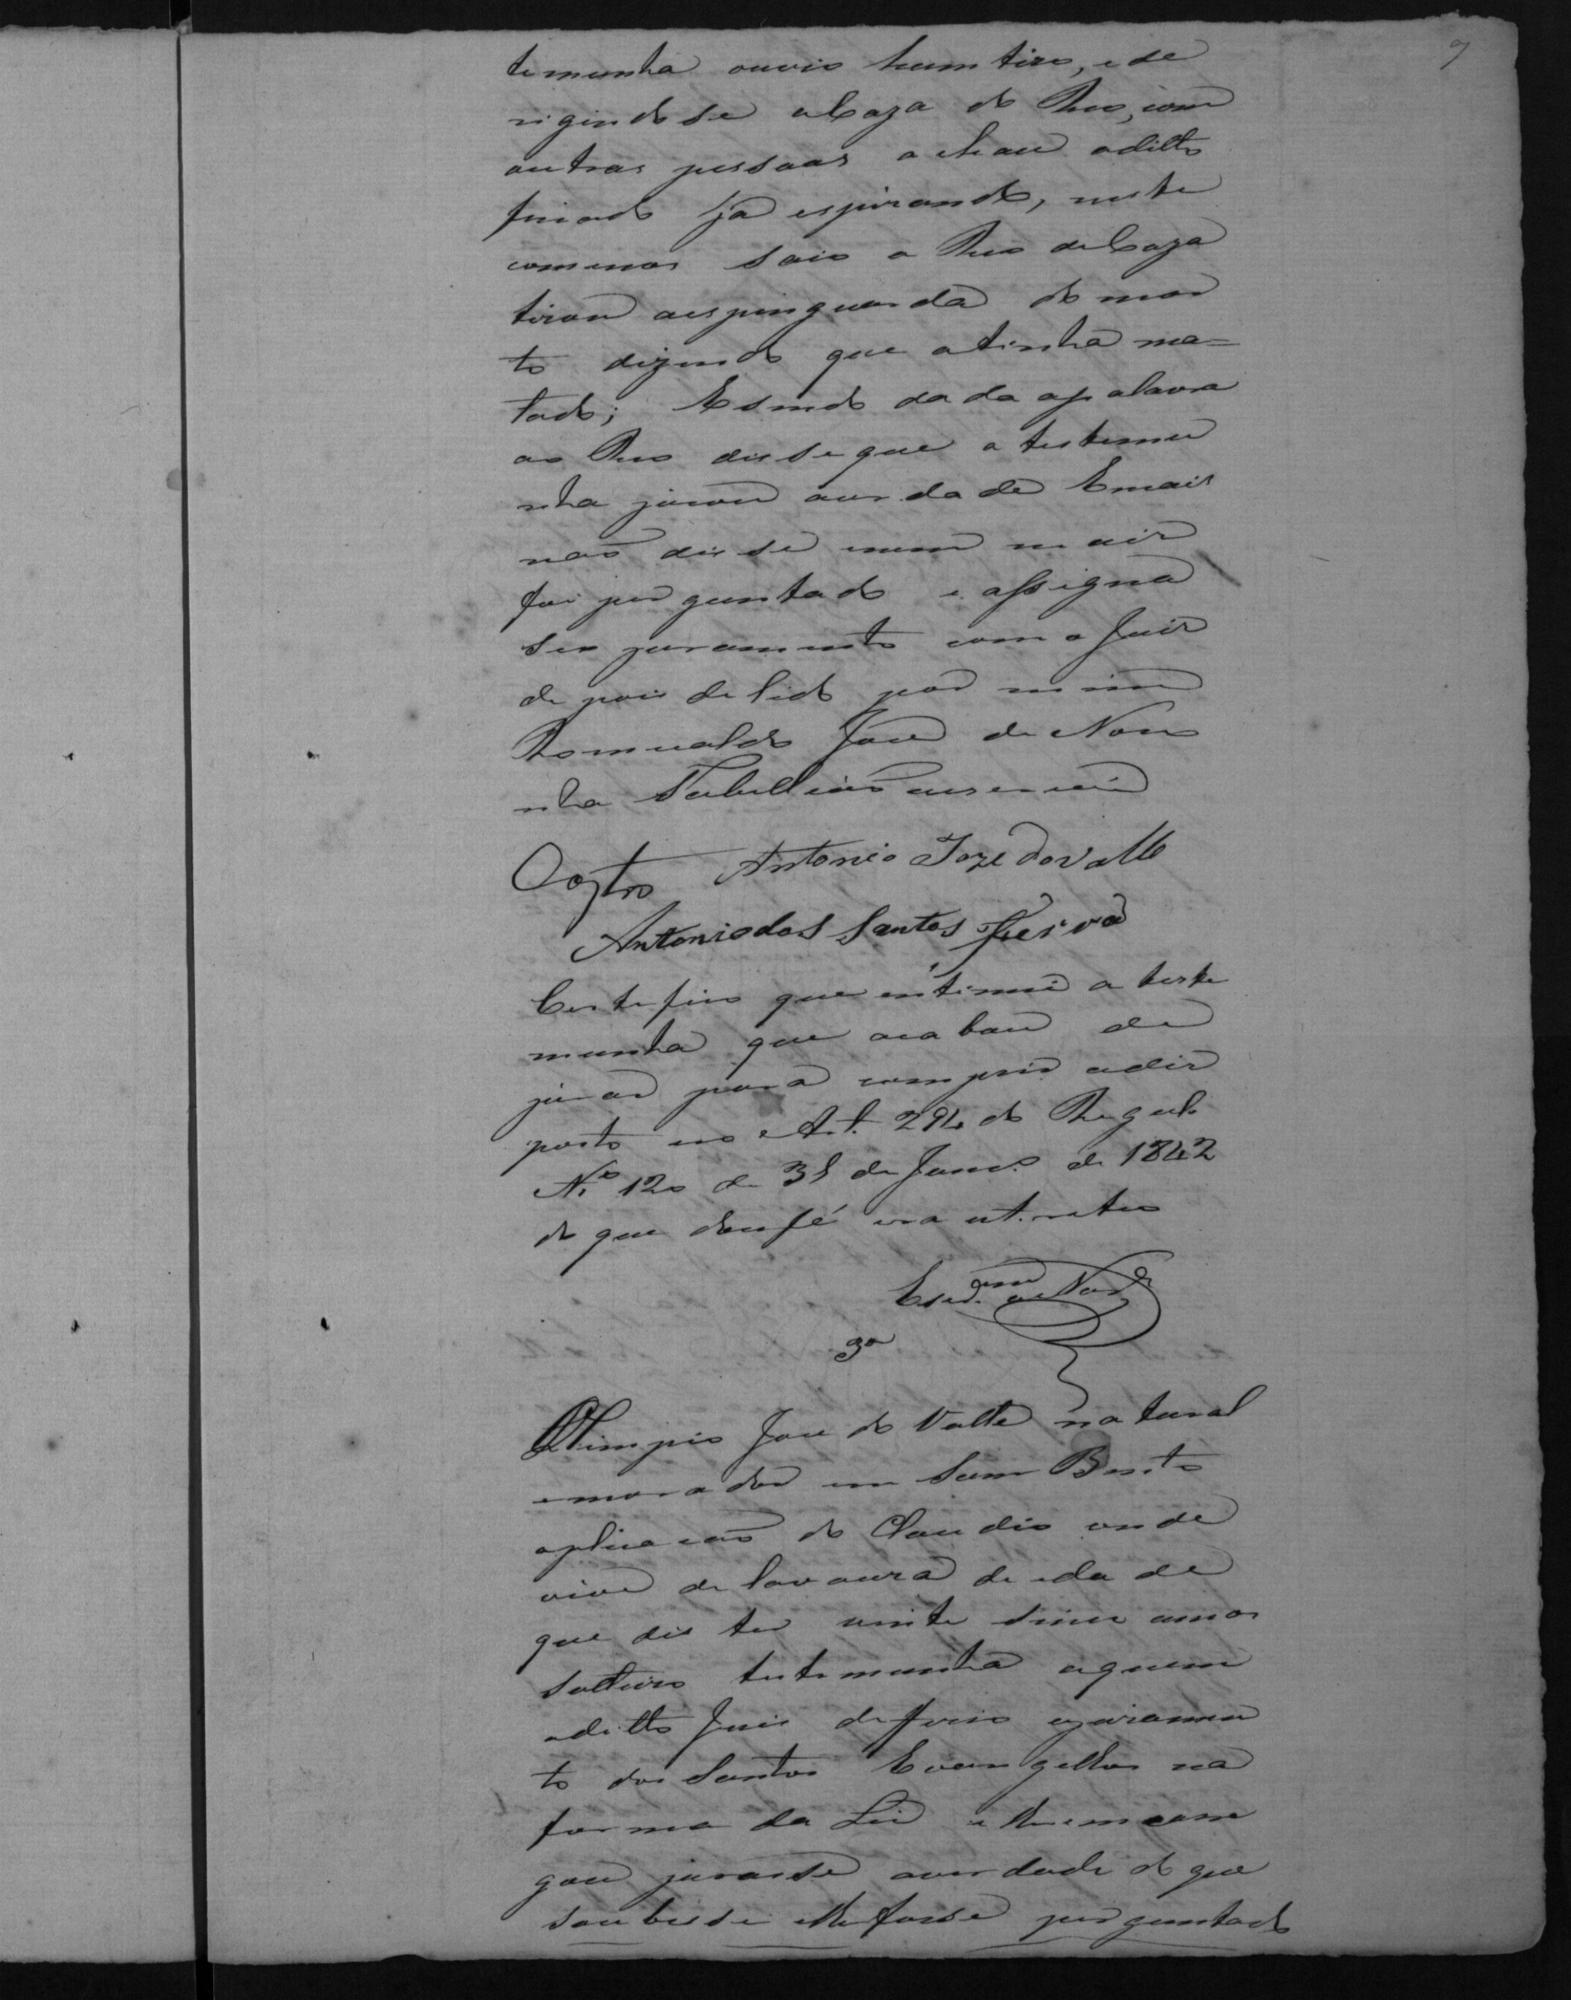 9
temunha ouvio hum tiro, e de
rigindo se a Caza do Reo, com
outras pessoas achou o ditto
finado já espirando, neste
comenos saio o Reo de Caza
tirou aespinguarda do mor
to dizendo que o tinha ma=
tado; E sendo dada apalavra
ao Reo disse que a testemu
nha jurou averdade E mais
não disse nem mais
foi perguntado e assigna
seu juramento com o Juis
depois de lido por mim
Romualdo Joze de Noro
nha Tabellião que escrevi
Castro Antonio Joze do Valle
Antonio dos Santos
Certefico que intimei a teste
munha que acabou de
jurar para comprir adis
posto no Art. 294 do Regul.
N.º 120 de 31 de Janr.º de 1842
do que dou fé era ut retro
3ª
Olimpio Joze do Valle natural
emorador em Sam Bento
aplicação do Claudio onde
vive de lavoura de edade
que dis ter vinte sinco annos
solteiro testemunha aquem
o ditto Juis deferio ojuramen
to dos Santos Evangelhos na
forma da Lei e lhe encarre
gou jurasse averdade do que
soubesse elhe fosse perguntado